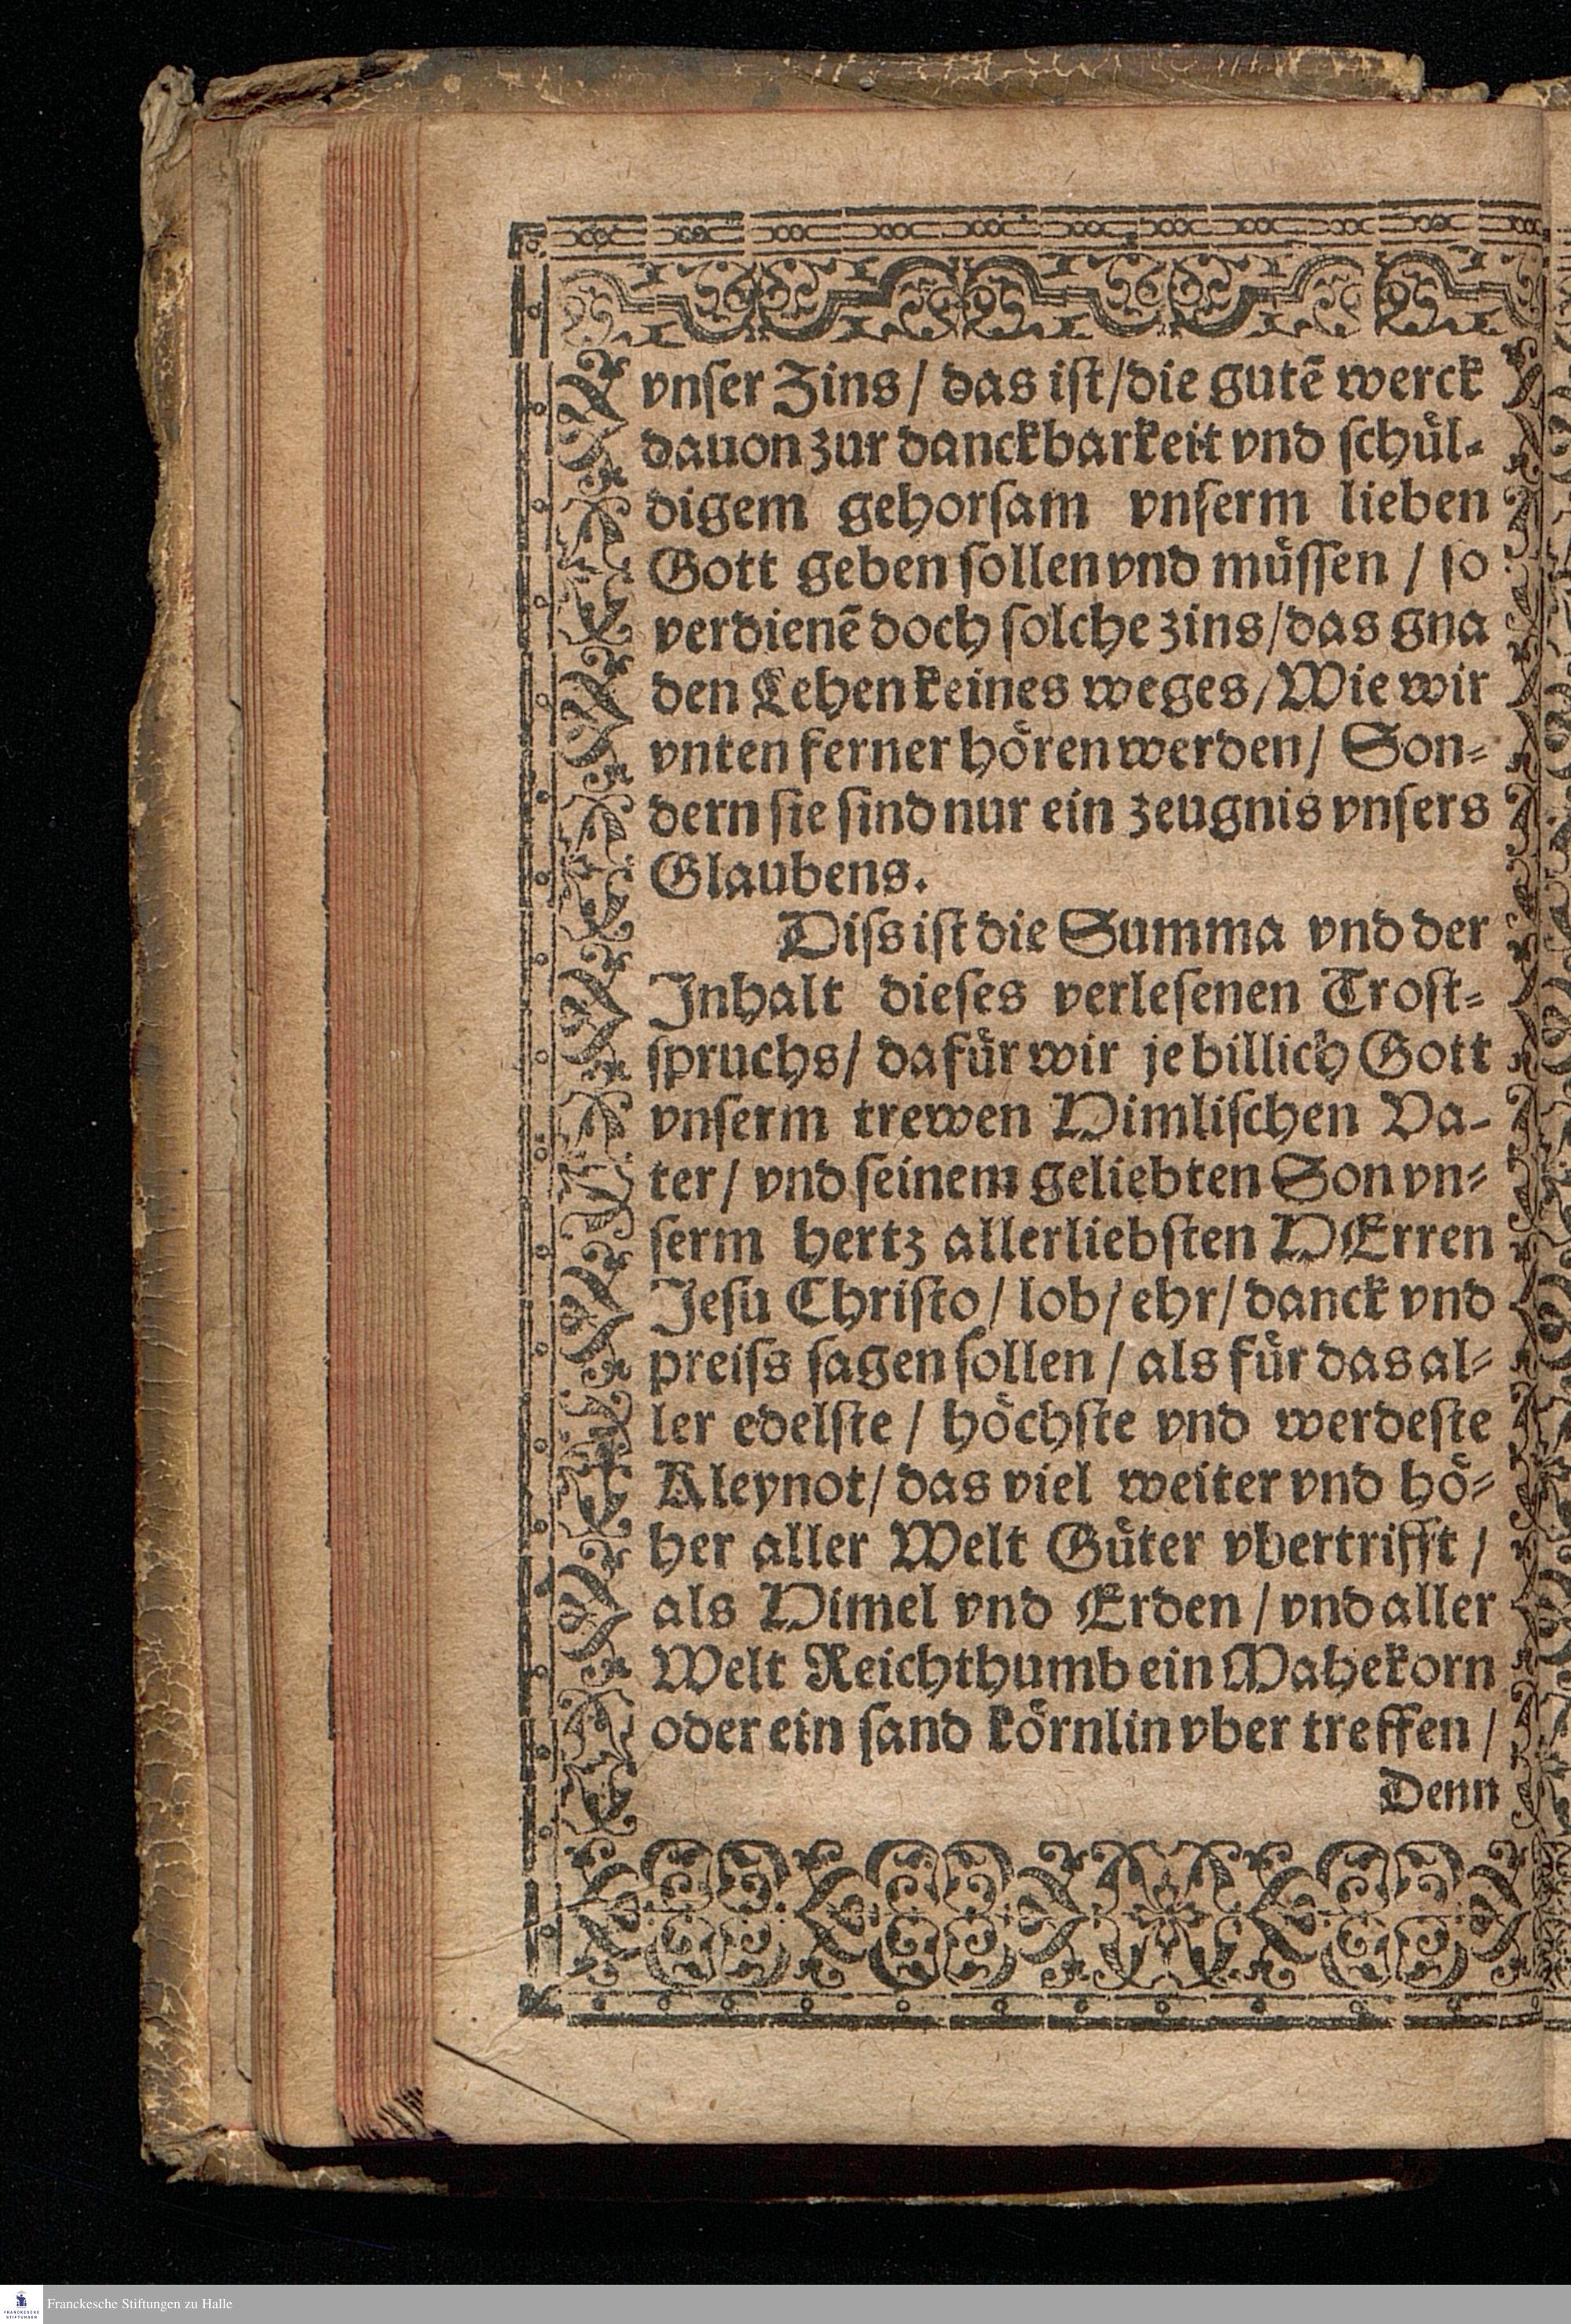 vnſer Zins / das iſt / die gutẽ werck
dauon zur danckbarkeit vnd ſchuͤl⸗
digem gehorſam vnſerm lieben
Gott geben ſollen vnd muͤſſen / ſo
verdienẽ doch ſolche zins / das gna
den Lehen keines weges / Wie wir
vnten ferner hoͤren werden / Son⸗
dern ſie ſind nur ein zeugnis vnſers
Glaubens.
Diſs iſt die Summa vnd der
Inhalt dieſes verleſenen Troſt⸗
ſpruchs / dafuͤr wir je billich Gott
vnſerm trewen Himliſchen Va⸗
ter / vnd ſeinem geliebten Son vn⸗
ſerm hertz allerliebſten HErren
Jeſu Chriſto / lob / ehr / danck vnd
preiſs ſagen ſollen / als fuͤr das al⸗
ler edelſte / hoͤchſte vnd werdeſte
Kleynot / das viel weiter vnd hoͤ⸗
her aller Welt Guͤter vbertrifft /
als Himel vnd Erden / vnd aller
Welt Reichthumb ein Mahekorn
oder ein ſand koͤrnlin vber treffen /
Denn
FRANCKESCHE
STIFTUNGEN
Franckesche Stiftungen zu Halle